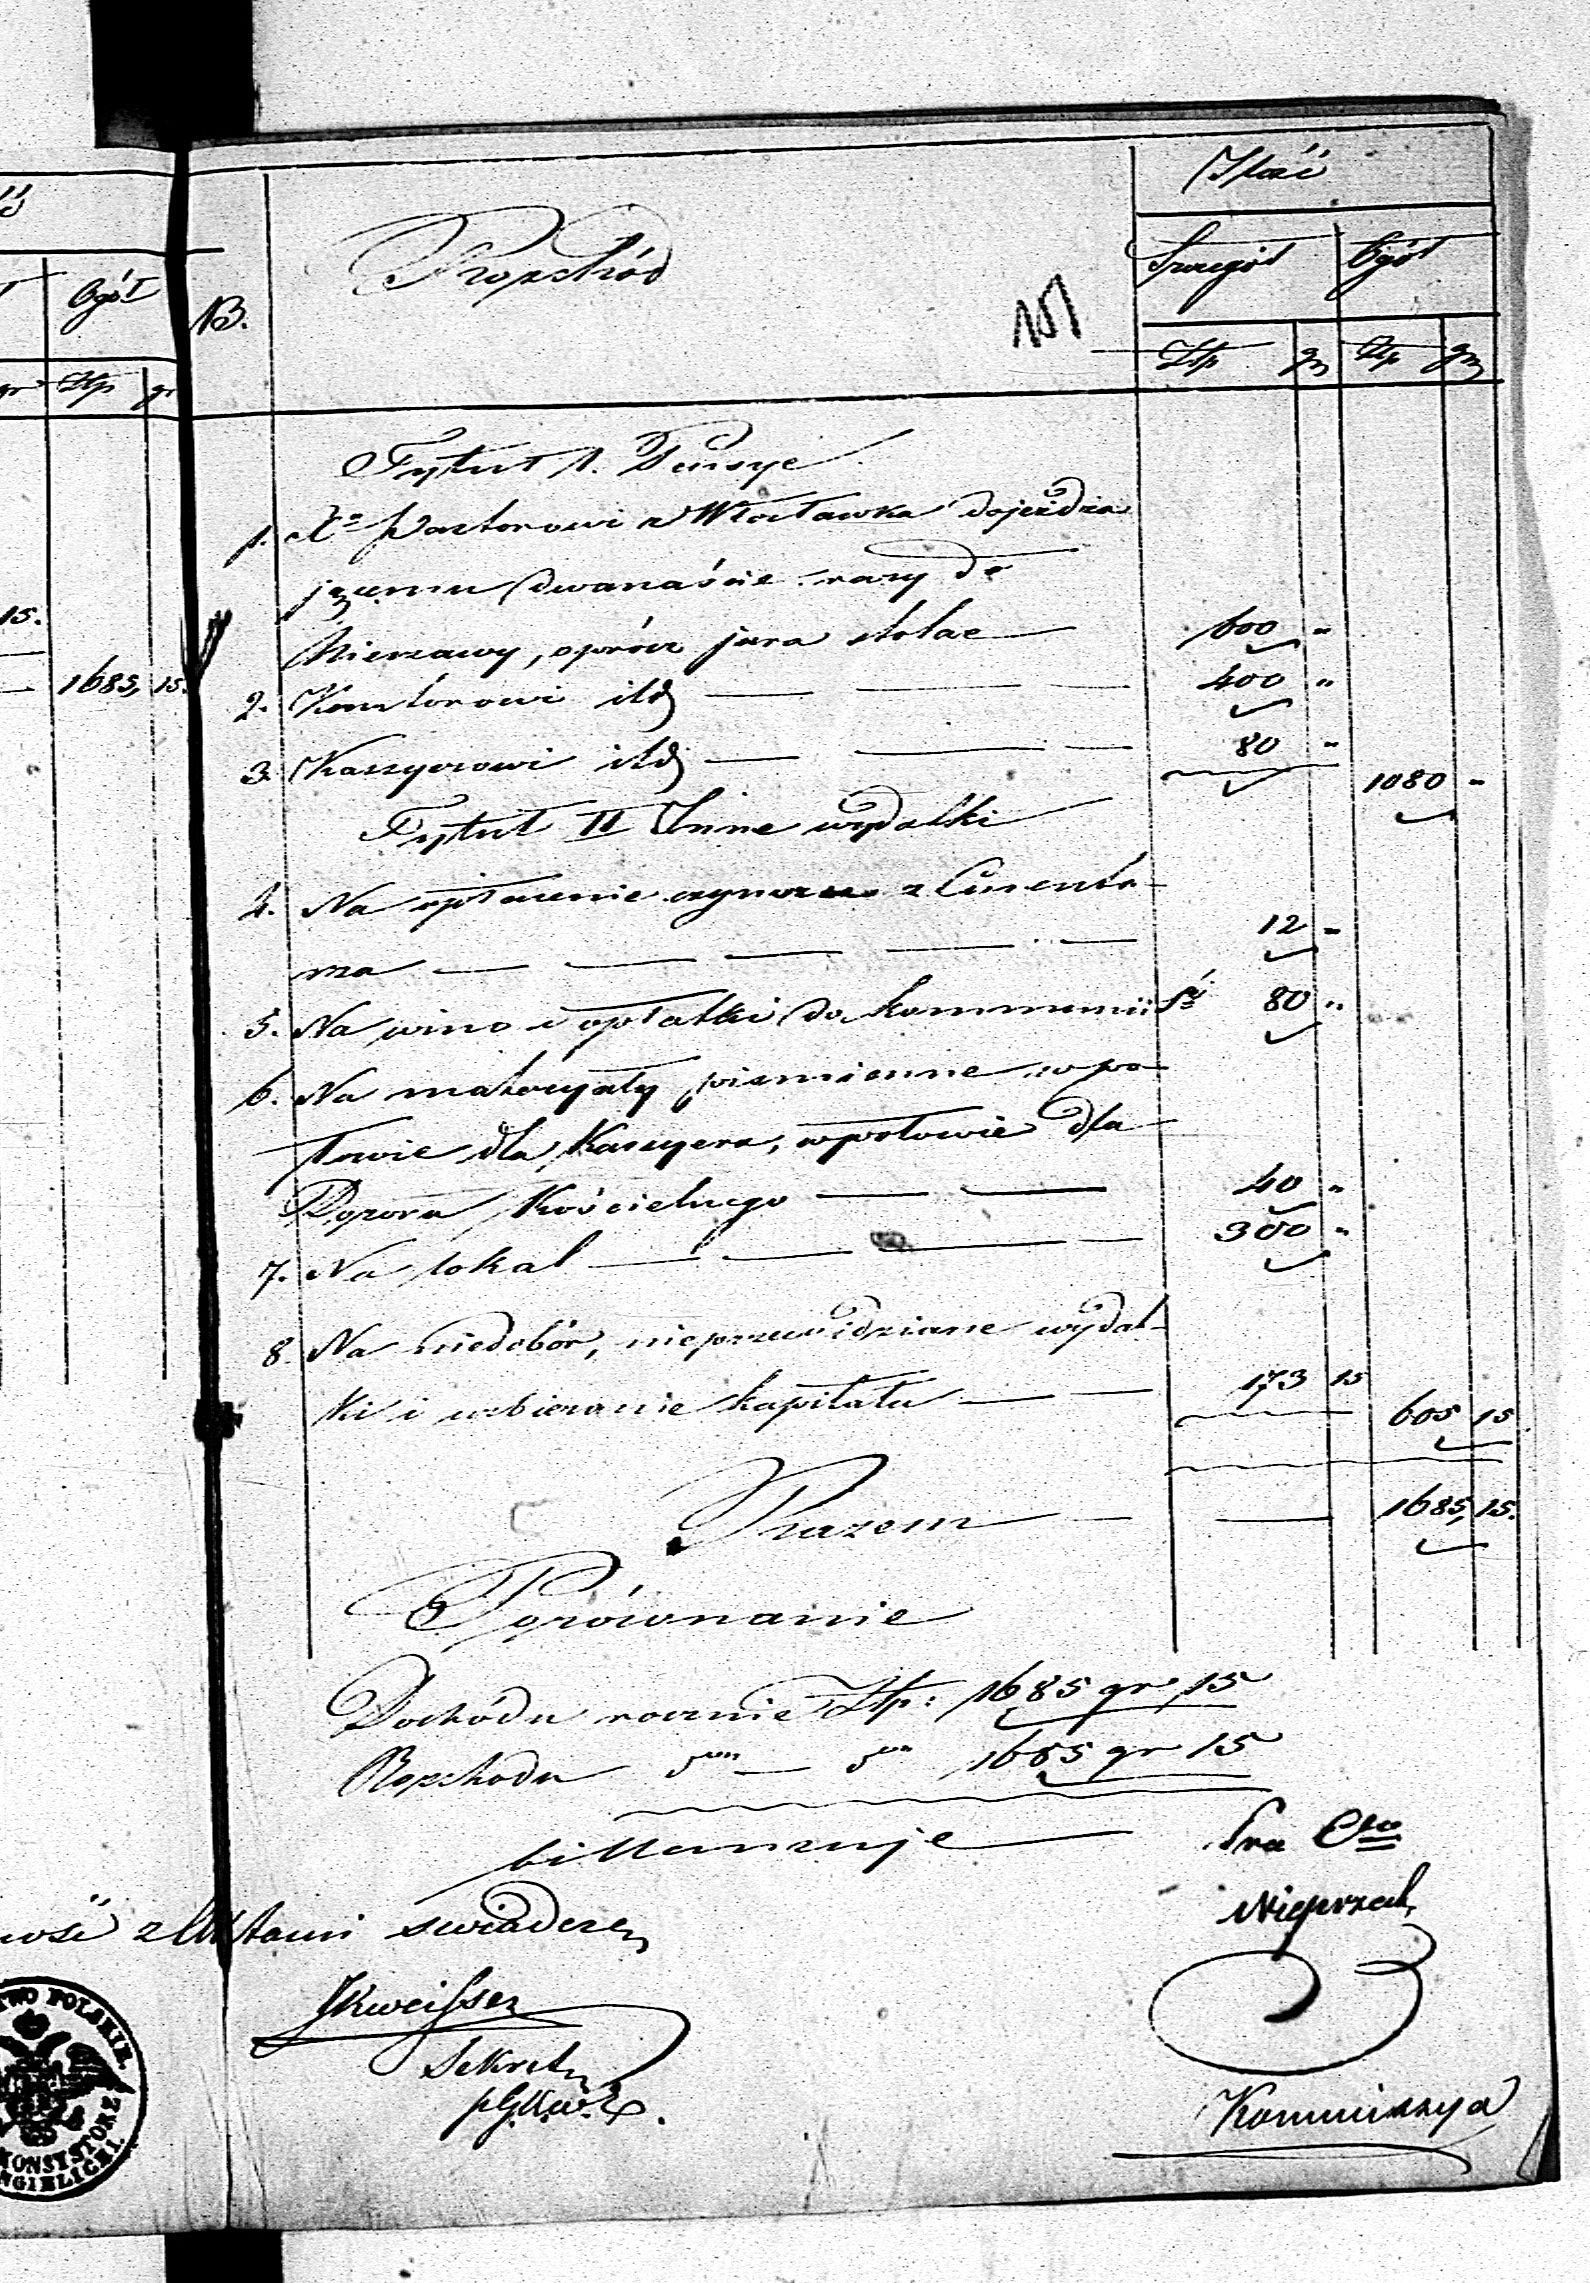 Ogół
Złp gr
15.
1685, 15.
Ilość
NB. Rozchód
Szczegół Ogół
151
Złp gr Złp gr
Tytuł 1. Pensye
1. Xº Pastorowi z Włocławka dojeżdża
jącemu dwanaście razy do
Nieszawy, oprócz jura stolae 600 "
2. Kantorowi itd 400 "
3. Kassyerowi itd 80 "
1080 "
Tytuł II Inne wydatki
4. Na opłacenie czynszu z Cmenta-
rza 12 "
5. Na wino i opłatki do kommunii Sś 80 "
6. Na materyały piśmienne w po-
łowie dla Kassyera, w połowie dla
Dozoru Kościelnego 40 "
7. Na lokal 300 "
8. Na niedobór, nieprzewidziane wydat-
ki i uzbieranie kapitału 173 15
605 15
Razem 1685, 15.
Porównanie
Dochódu rocznie Złp: 1685 gr 15
Rozchodu 1685 gr 15
billansuje
z Aktami swiadczę
Sekret
Kommissya
TWO POLSKIE.
KONSYSTORZ
NGIELICKI.